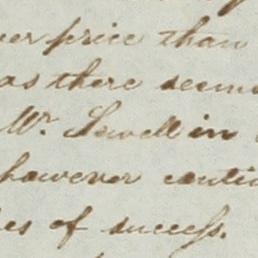 ver price than
as there seem
Mr. Sewell in
however conti
es of success.